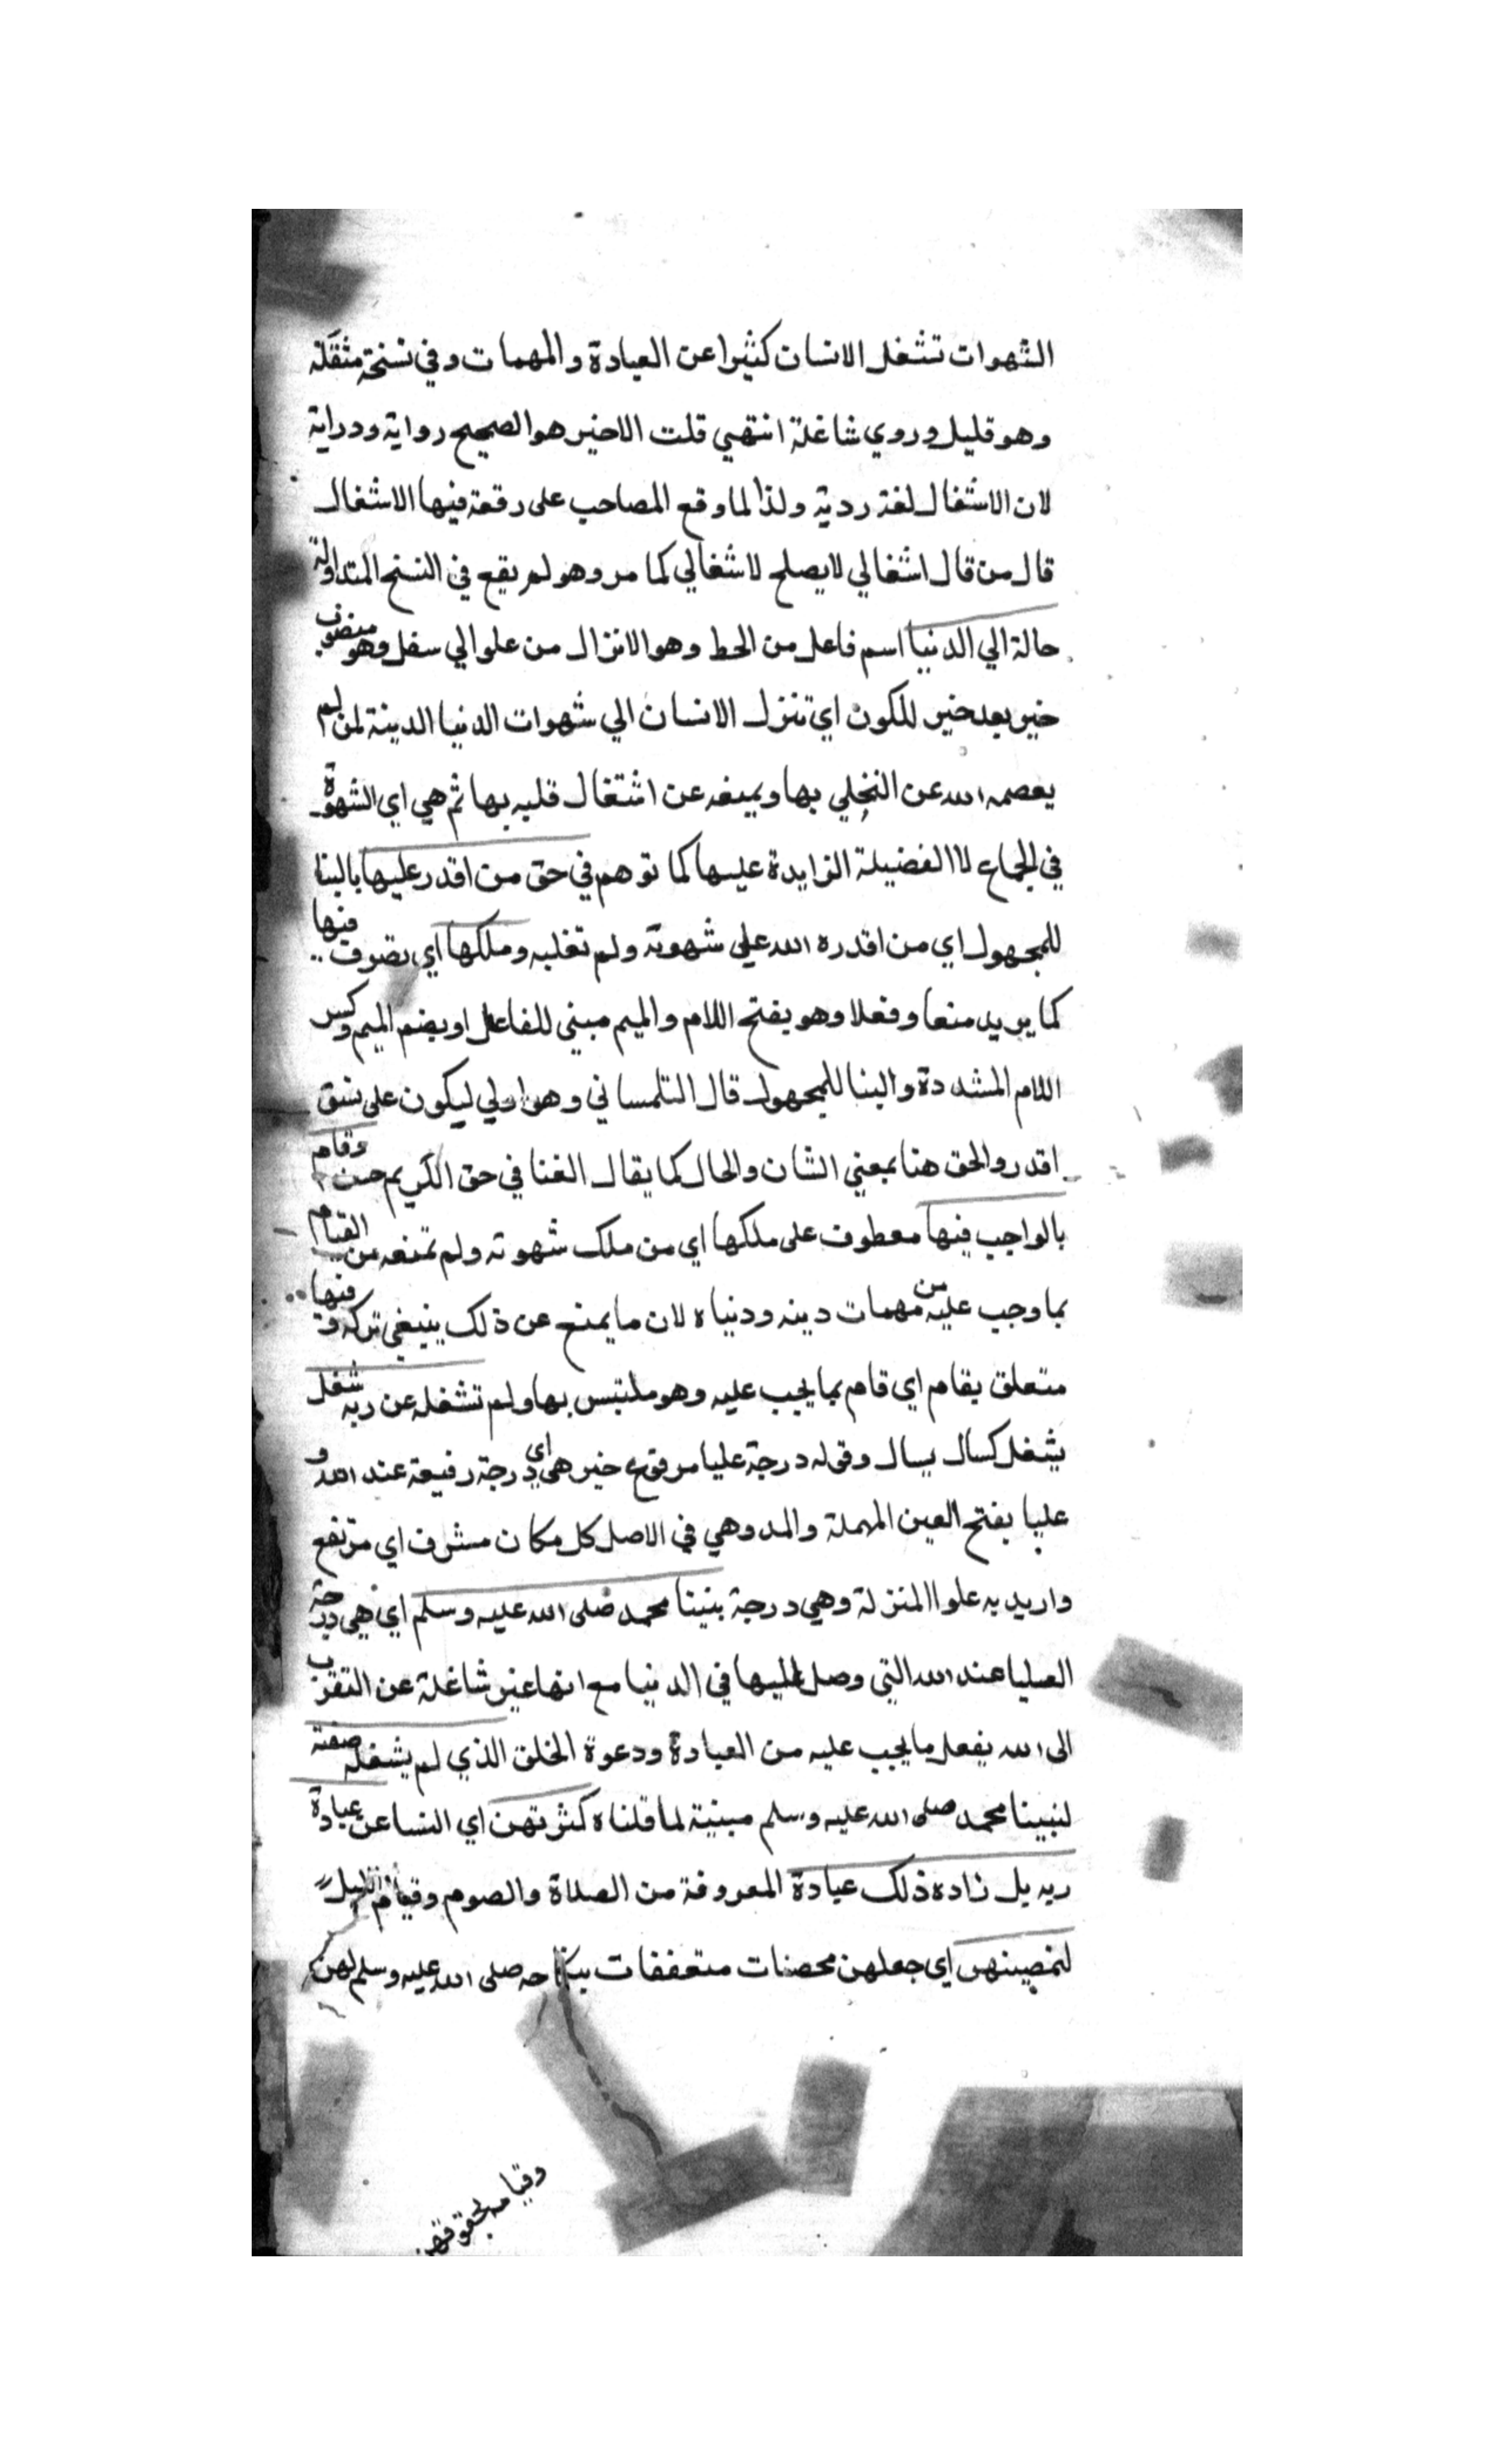 الشهوات تشغل الانسان كثيرا عن العبادة والمهمات وفي نسخة مثقلة
وهو قليل وروي شاغلة انتهي قلت الاخير هو الصحيح رواية ودراية
لان الاشغال لغة ردية ولذا لما وقع المصاحب على رقعة فيها الاشغال
قال من قال اشغالي لا يصلح لاشغالي كما مر وهو لم يقع في النسخ المتداولة
حالة الي الدنيا اسم فاعل من الحط وهو الانزال من علو الي سفل وهو منصوب
خبر بعد خبر للكون اي تنزل الانسان الي شهوات الدنيا الدينة لمن لم
يعصمه الله عن التخلي بها ويمنعه عن اشتغال قلبه بها ثم هي اي الشهوة
في الجماع لا الفضيلة الزايدة عليها كما توهم في حق من اقدر عليها بالبنا
للمجهول اي من اقدره الله علي شهوته ولم تغلبه وملكها اي تصرف فيها
كما يريد منعا وفعلا وهو بفتح اللام والميم مبني للفاعل او بضم الميم وكسر
اللام المشددة والبنا للمجهول قال التلمساني وهو اولي ليكون على نسق
اقدر والحق هنا بمعني الشان والحال كما يقال الغنا في حق الكريم حسن وقام
بالواجب فيها معطوف على ملكها اي من ملك شهوته ولم تمنعه من القيام
بما وجب عليه من مهمات دينه ودنياه لان ما يمنع عن ذلك ينبغي تركه وفيها
متعلق بقام اي قام بما يجب عليه وهو ملتبس بها ولم تشغله عن ربه شغل
يشغل كسال يسال وقوله درجة عليا مرفوع خبر هي اي درجة رفيعة عند الله و
عليا بفتح العين المهملة والمد وهي في الاصل كل مكان مشرف اي مرتفع
واريد به علو المنزلة وهي درجة نبينا محمد صلى الله عليه وسلم اي هي درجة
العليا عند الله التي وصل اليها في الدنيا مع انها غير شاغلة عن التقرب
الى الله بفعل ما يجب عليه من العبادة ودعوة الخلق الذي لم يشغله صفة
لنبينا محمد صلى الله عليه وسلم مبنية لما قلناه كثرتهن اي النسا عن عبادة
ربه بل زاده ذلك عبادة المعروفة من الصلاة والصوم وقيام الليل
لتحصينهن اي جعلهن محصنات متعففات بنكاحه صلى الله عليه وسلم لهن
وقيامه بحقوقهن